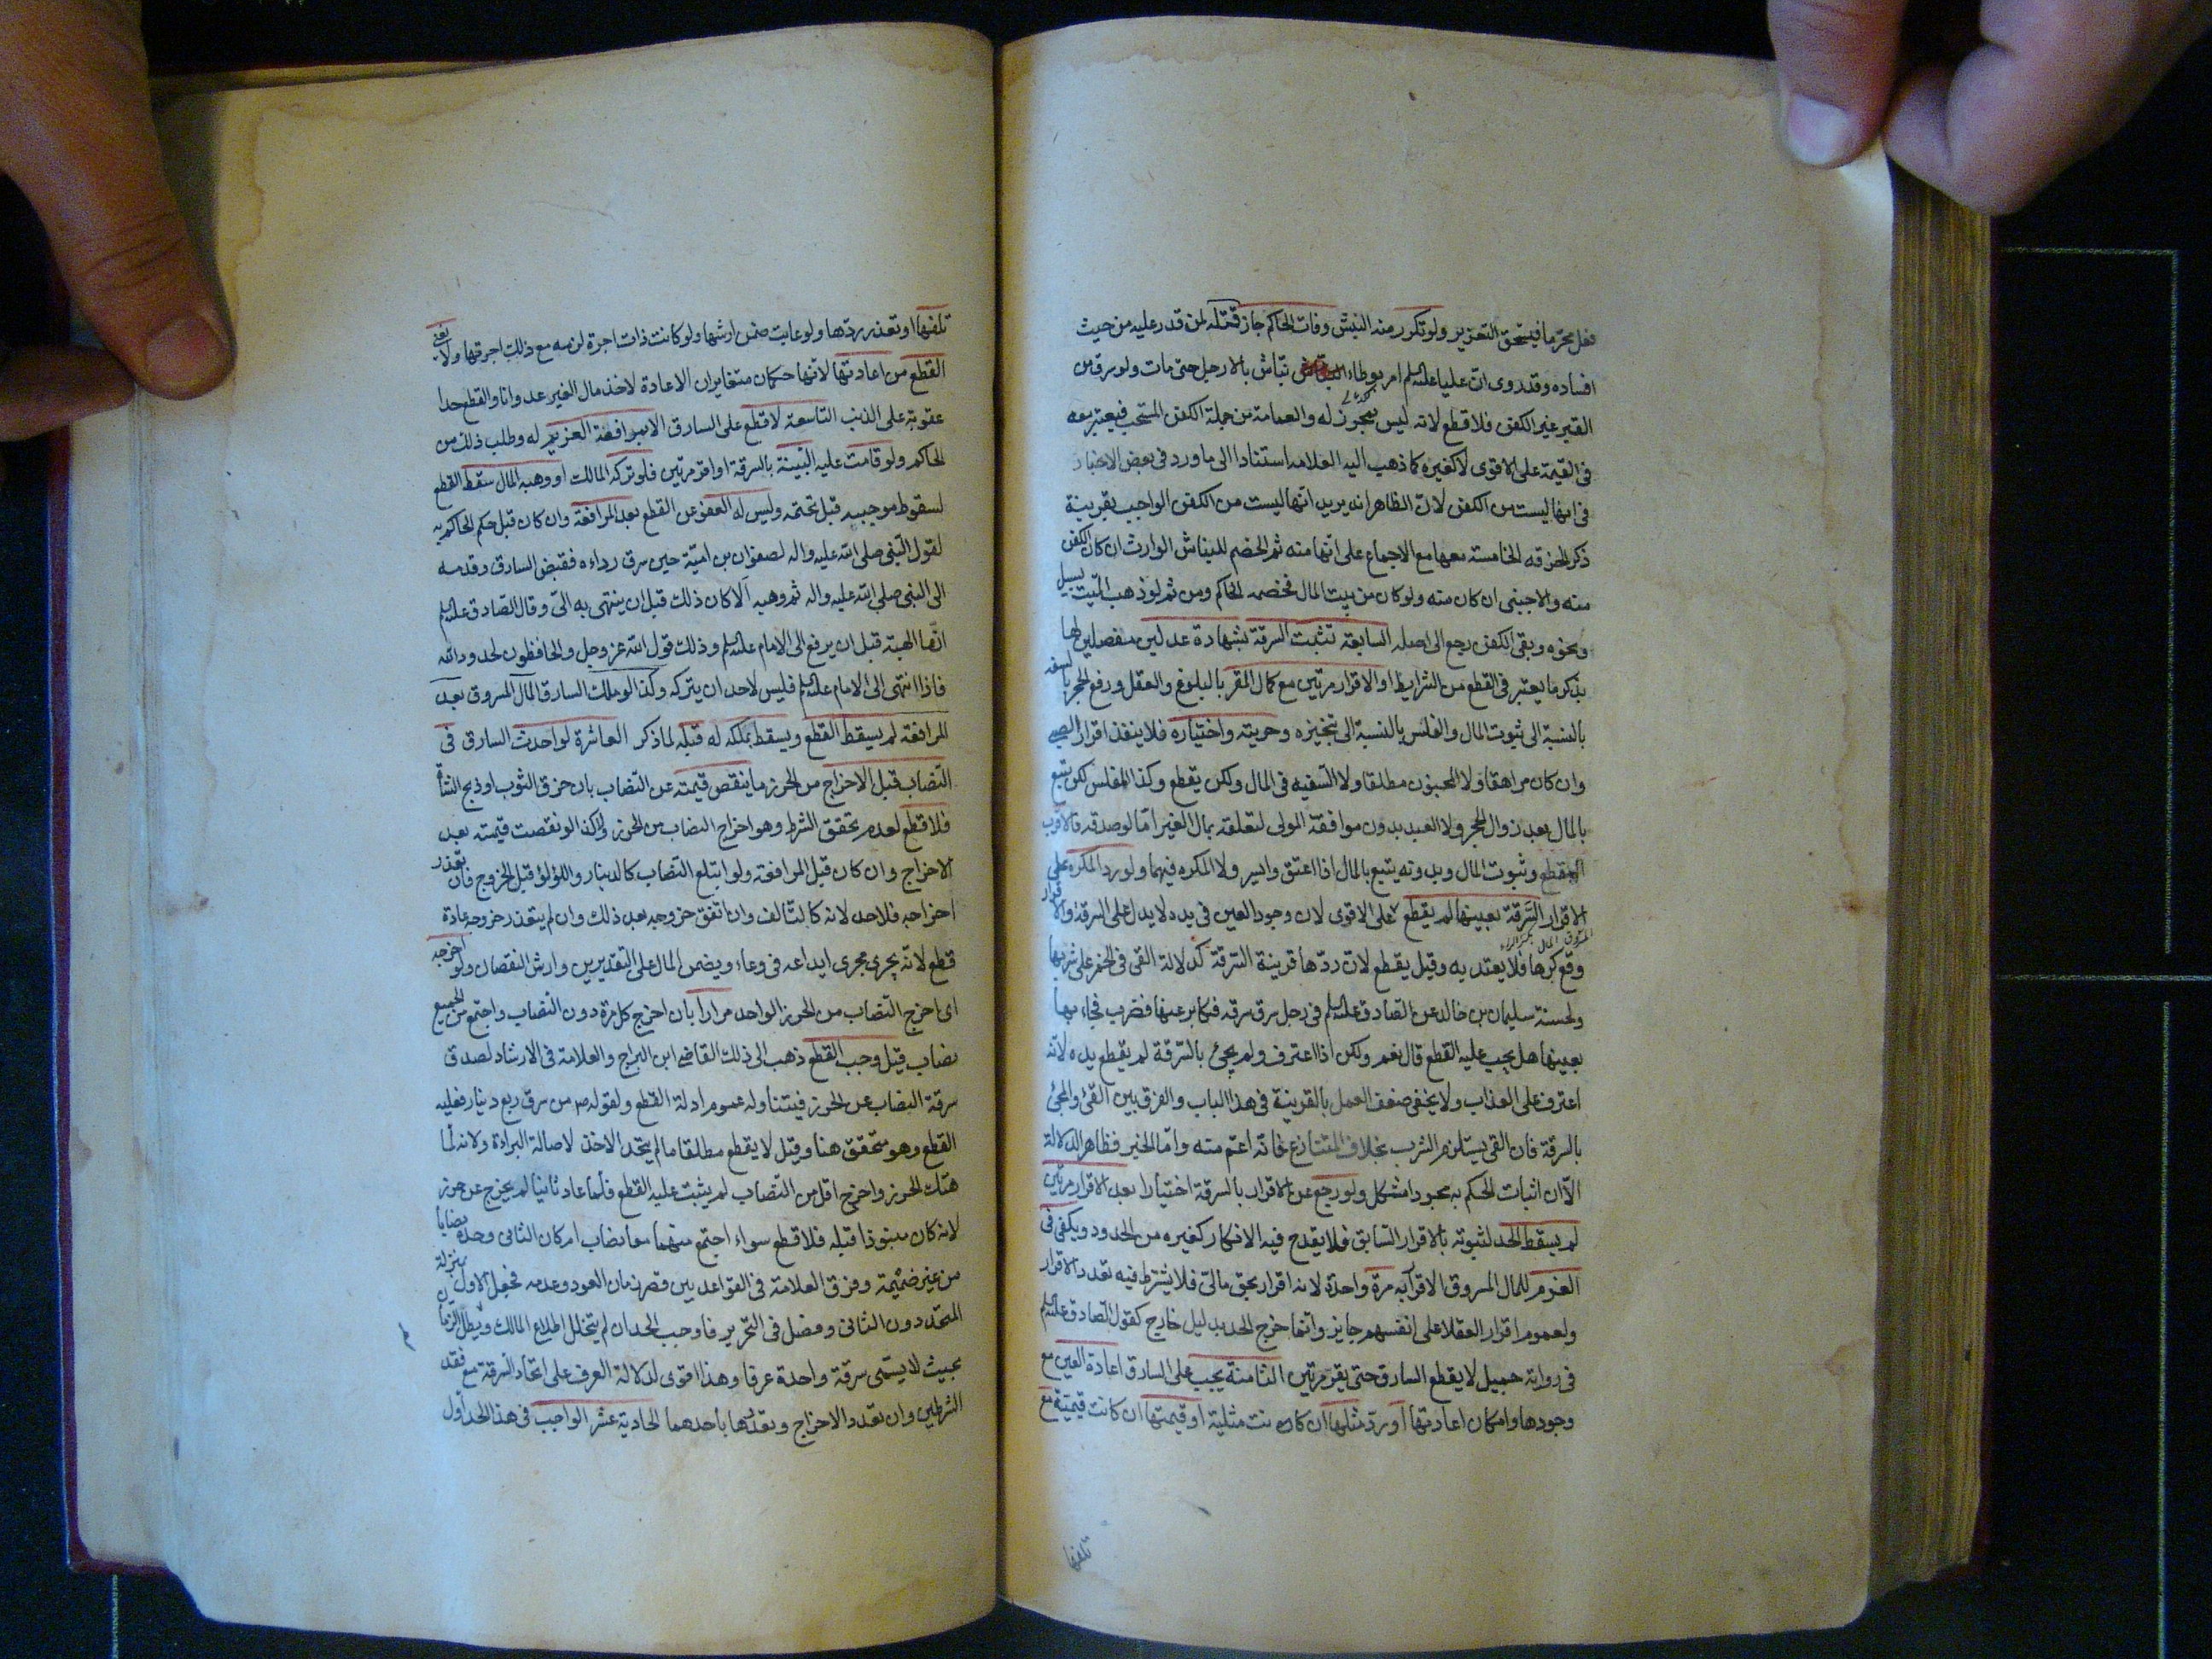 فعل محرما فيستحق التعزير ولو تكرر منه النبش وفات الحاكم جاز قتله لمن قدر عليه من حيث
افساده وقد روى ان عليا عليه السلم امر بوطاء نباش بالارجل حتى مات ولو سرق من
القبر غير الكفن فلا قطع لانه ليس بحرز له والعمامة من جملة الكفن المستحب فيعتبر معه
فى القيمة على الاقوى لا كغيره كما ذهب اليه العلامه استنادا الى ما ورد فى بعض الاخبار
فى انها ليست من الكفن لان الظاهر انه يريد انها ليست من الكفن الواجب بقرينة
ذكر الخرقه الخامسة معها مع الاجماع على انها منه ثم الخصم للنباش الوارث ان كان الكفن
منه والاجنبى ان كان منه ولو كان من بيت المال فخصمه الحاكم ومن ثم لو ذهب الميت بسيل
ونحوه وبقى الكفن رجع الى اصله السابعة تثبت السرقة بشهادة عدلين مفصلين لها
بذكر ما يعتبر فى القطع من الشرايط او الاقرار مرتين مع كمال المقر بالبلوغ والعقل ورفع الحجر بالسفه
بالنسبة الى ثبوت المال والفلس بالنسبة الى تنجيزه وحريته واختياره فلا ينفذ اقرار الصبى
وان كان مراهقا ولا المجنون مطلقا ولا السفيه فى المال ولكن يقطع وكذا المفلس لكن يتبع
بالمال بعد زوال الحجر ولا العبد بدون موافقة المولى لتعلقه بمال الغير اما لو صدقه فالاقرب
القطع وثبوت المال وبدونه يتبع بالمال اذا اعتق وايسر ولا المكره فيهما ولو رد المكره على
الاقرار السرقة بعينها لم يقطع على الاقوى لان وجود العين فى يده لا يدل على السرقة والاقرار
وقع كرها فلا يعتد به وقيل يقطع لان ردها قرينة السرقة كدلالة القى فى الخمر على شربها
ولحسنة سليمان بن خالد عن الصادق عليه السلم فى رجل سرق سرقه فكابر عنها فضرب فجاء بها
بعينها هل يجب عليه القطع قال نعم ولكن اذا اعترف ولم يجئ بالسرقة لم يقطع يده لانه
اعترف على العذاب ولا يخفى ضعف العمل بالقرينة فى هذا الباب والفرق بين القئ والمجئ
بالسرقة فان القى يستلزم الشرب بخلاف المتنازع فانه اعم منه واما الخبر فظاهر الدلالة
الا ان اثبات الحكم به مجردا مشكل ولو رجع عن الاقرار بالسرقة اختيارا بعد الاقرار مرتين
لم يسقط الحد لثبوته بالاقرار السابق فلا يقدح فيه الانكار كغيره من الحدود ويكفى فى
الغرم للمال المسروق الاقرار به مرة واحدة لانه اقرار بحق مالى فلا يشترط فيه تعدد الاقرار
ولعموم اقرار العقلا على انفسهم جايز وانما خرج الحد بدليل خارج كقول الصادق عليه السلم
فى رواية جميل لا يقطع السارق حتى يقر مرتين الثامنة يجب على السارق اعادة العين مع
وجودها وامكان اعادتها او رد مثلها ان كانت مثلية او قيمتها ان كانت قيمية مع
تلفها
تلفها او تعذر ردها ولو عابت ضمن ارشها ولو كانت ذات اجرة لزمه مع ذلك اجرتها ولا يغنى
القطع من اعادتها لانها حكمان متغايران الاعادة لاخذ مال الغير عدوانا والقطع حدا
عقوبة على الذنب التاسعة لا قطع على السارق الا بمرافعة الغريم له وطلب ذلك من
الحاكم ولو قامت عليه البينة بالسرقة او اقر مرتين فلو تركه المالك او وهبه المال سقط القطع
لسقوط موجبه قبل تحتمه وليس له العفو عن القطع بعد المرافعة وان كان قبل حكم الحاكم به
لقول النبى صلى الله عليه واله لصفوان بن امية حين سرق رداءه فقبض السارق وقدمه
الى النبى صلى الله عليه واله ثم وهبه الا كان ذلك قبل ان ينتهى به الى وقال الصادق عليه السلم
انما الهبة قبل ان يرفع الى الامام عليه السلم وذلك قول الله عز وجل والحافظون لحدود الله
فاذا انتهى الى الامام عليه السلم فليس لاحد ان يتركه وكذا لو ملك السارق المال المسروق بعد
المرافعة لم يسقط القطع ويسقط بملكه له قبله لما ذكر العاشرة لو احدث السارق فى
النصاب قبل الاخراج من الحرز ما ينقص قيمته عن النصاب بان خرق الثوب او ذبح الشاة
فلا قطع لعدم تحقق الشرط وهو اخراج النصاب من الحرز ولا كذا لو نقصت قيمته بعد
الاخراج وان كان قبل المرافعة ولو ابتلع النصاب كالدينار واللؤلؤ قبل الخروج فان تعذر
اخراجه فلا حد لانه كالتالف وان اتفق خروجه بعد ذلك وان لم يتعذر خروجه عادة
قطع لانه يجرى مجرى ايداعه فى وعاء ويضمن المال على التقديرين وارش النقصان ولو اخرجه
اى اخرج النصاب من الحرز الواحد مرارا بان اخرج كل مرة دون النصاب واجتمع من الجميع
نصاب قيل وجب القطع ذهب الى ذلك القاضى ابن البراج والعلامة فى الارشاد لصدق
سرقة النصاب من الحرز فيتناوله عموم ادلة القطع ولقوله ص من سرق ربع دينار فعليه
القطع وهو متحقق هنا وقيل لا يقطع مطلقا ما لم يتحد الاخذ لاصالة البراءة ولانه لما
هتك الحرز واخرج اقل من النصاب لم يثبت عليه القطع فلما عاد ثانيا لم يخرج عن حرز
لانه كان منبوذا قبله فلا قطع سواء اجتمع منهما معا نصاب ام كان الثانى وحده نصابا
من غير ضميمة وفرق العلامة فى القواعد بين قصر زمان العود وعدمه فجعل الاول بمنزلة
المتحد دون الثانى وفصل فى التحرير فاوجب الحد ان لم يتخلل اطلاع المالك ولم يطل الزمان
بحيث لا يسمى سرقة واحدة عرفا وهذا اقوى لدلالة العرف على اتحاد السرقة مع فقد
الشرطين وان تعدد الاخراج وتعددها باحدهما الحادية عشر الواجب فى هذا الحد اول